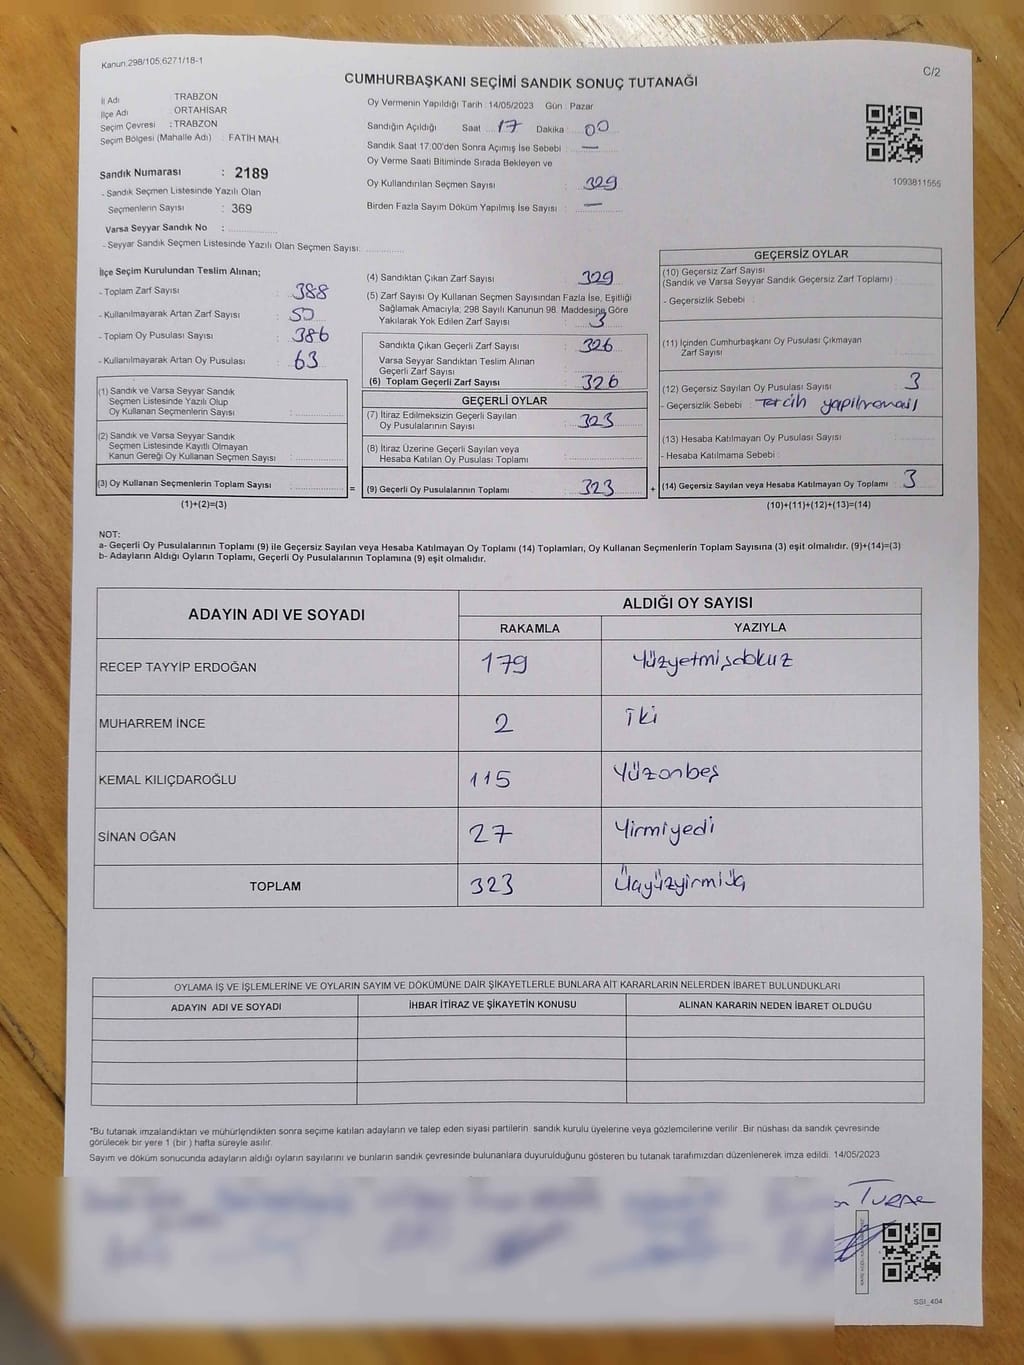 Kanun,298/105,6271/18-1
C/2
CUMHURBAŞKANI SEÇİMİ SANDIK SONUÇ TUTANAĞI
İl Adı TRABZON
İlçe Adı : ORTAHİSAR
Seçim Çevresi : TRABZON
Seçim Bölgesi (Mahalle Adı) : FATİH MAH.
Sandık Numarası : 2189
- Sandık Seçmen Listesinde Yazılı Olan
Seçmenlerin Sayısı : 369
Varsa Seyyar Sandık No :
- Seyyar Sandık Seçmen Listesinde Yazılı Olan Seçmen Sayısı:
Oy Vermenin Yapıldığı Tarih : 14/05/2023 Gün : Pazar
Sandığın Açıldığı Saat 17 Dakika 00
Sandık Saat 17:00'den Sonra Açımış İse Sebebi : —
Oy Verme Saati Bitiminde Sırada Bekleyen ve
Oy Kullandırılan Seçmen Sayısı : 329
Birden Fazla Sayım Döküm Yapılmış İse Sayısı : —
1093811555
İlçe Seçim Kurulundan Teslim Alınan;
- Toplam Zarf Sayısı : 388
- Kullanılmayarak Artan Zarf Sayısı : 50
- Toplam Oy Pusulası Sayısı : 386
- Kullanılmayarak Artan Oy Pusulası : 63
(1) Sandık ve Varsa Seyyar Sandık
Seçmen Listesinde Yazılı Olup
Oy Kullanan Seçmenlerin Sayısı :
(2) Sandık ve Varsa Seyyar Sandık
Seçmen Listesinde Kayıtlı Olmayan
Kanun Gereği Oy Kullanan Seçmen Sayısı :
(3) Oy Kullanan Seçmenlerin Toplam Sayısı : =
(1)+(2)=(3)
(4) Sandıktan Çıkan Zarf Sayısı : 329
(5) Zarf Sayısı Oy Kullanan Seçmen Sayısından Fazla İse, Eşitliği
Sağlamak Amacıyla; 298 Sayılı Kanunun 98. Maddesine Göre
Yakılarak Yok Edilen Zarf Sayısı : 3
Sandıkta Çıkan Geçerli Zarf Sayısı : 326
Varsa Seyyar Sandıktan Teslim Alınan
Geçerli Zarf Sayısı :
(6) Toplam Geçerli Zarf Sayısı : 326
GEÇERLİ OYLAR
(7) İtiraz Edilmeksizin Geçerli Sayılan
Oy Pusulalarının Sayısı : 323
(8) İtiraz Üzerine Geçerli Sayılan veya
Hesaba Katılan Oy Pusulası Toplamı :
(9) Geçerli Oy Pusulalarının Toplamı : 323 +
GEÇERSİZ OYLAR
(10) Geçersiz Zarf Sayısı
(Sandık ve Varsa Seyyar Sandık Geçersiz Zarf Toplamı) :
- Geçersizlik Sebebi :
(11) İçinden Cumhurbaşkanı Oy Pusulası Çıkmayan
Zarf Sayısı :
(12) Geçersiz Sayılan Oy Pusulası Sayısı : 3
- Geçersizlik Sebebi : Tercih yapılmaması
(13) Hesaba Katılmayan Oy Pusulası Sayısı :
- Hesaba Katılmama Sebebi :
(14) Geçersiz Sayılan veya Hesaba Katılmayan Oy Toplamı : 3
(10)+(11)+(12)+(13)=(14)
NOT:
a- Geçerli Oy Pusulalarının Toplamı (9) ile Geçersiz Sayılan veya Hesaba Katılmayan Oy Toplamı (14) Toplamları, Oy Kullanan Seçmenlerin Toplam Sayısına (3) eşit olmalıdır. (9)+(14)=(3)
b- Adayların Aldığı Oyların Toplamı, Geçerli Oy Pusulalarının Toplamına (9) eşit olmalıdır.
ADAYIN ADI VE SOYADI
ALDIĞI OY SAYISI
RAKAMLA YAZIYLA
RECEP TAYYİP ERDOĞAN 179 Yüzyetmişdokuz
MUHARREM İNCE 2 İki
KEMAL KILIÇDAROĞLU 115 Yüzonbeş
SİNAN OĞAN 27 Yirmiyedi
TOPLAM 323 Üçyüzyirmiüç
OYLAMA İŞ VE İŞLEMLERİNE VE OYLARIN SAYIM VE DÖKÜMÜNE DAİR ŞİKAYETLERLE BUNLARA AİT KARARLARIN NELERDEN İBARET BULUNDUKLARI
ADAYIN ADI VE SOYADI İHBAR İTİRAZ VE ŞİKAYETİN KONUSU ALINAN KARARIN NEDEN İBARET OLDUĞU
*Bu tutanak imzalandıktan ve mühürlendikten sonra seçime katılan adayların ve talep eden siyasi partilerin sandık kurulu üyelerine veya gözlemcilerine verilir. Bir nüshası da sandık çevresinde
görülecek bir yere 1 (bir ) hafta süreyle asılır.
Sayım ve döküm sonucunda adayların aldığı oyların sayılarını ve bunların sandık çevresinde bulunanlara duyurulduğunu gösteren bu tutanak tarafımızdan düzenlenerek imza edildi. 14/05/2023
SSI_404